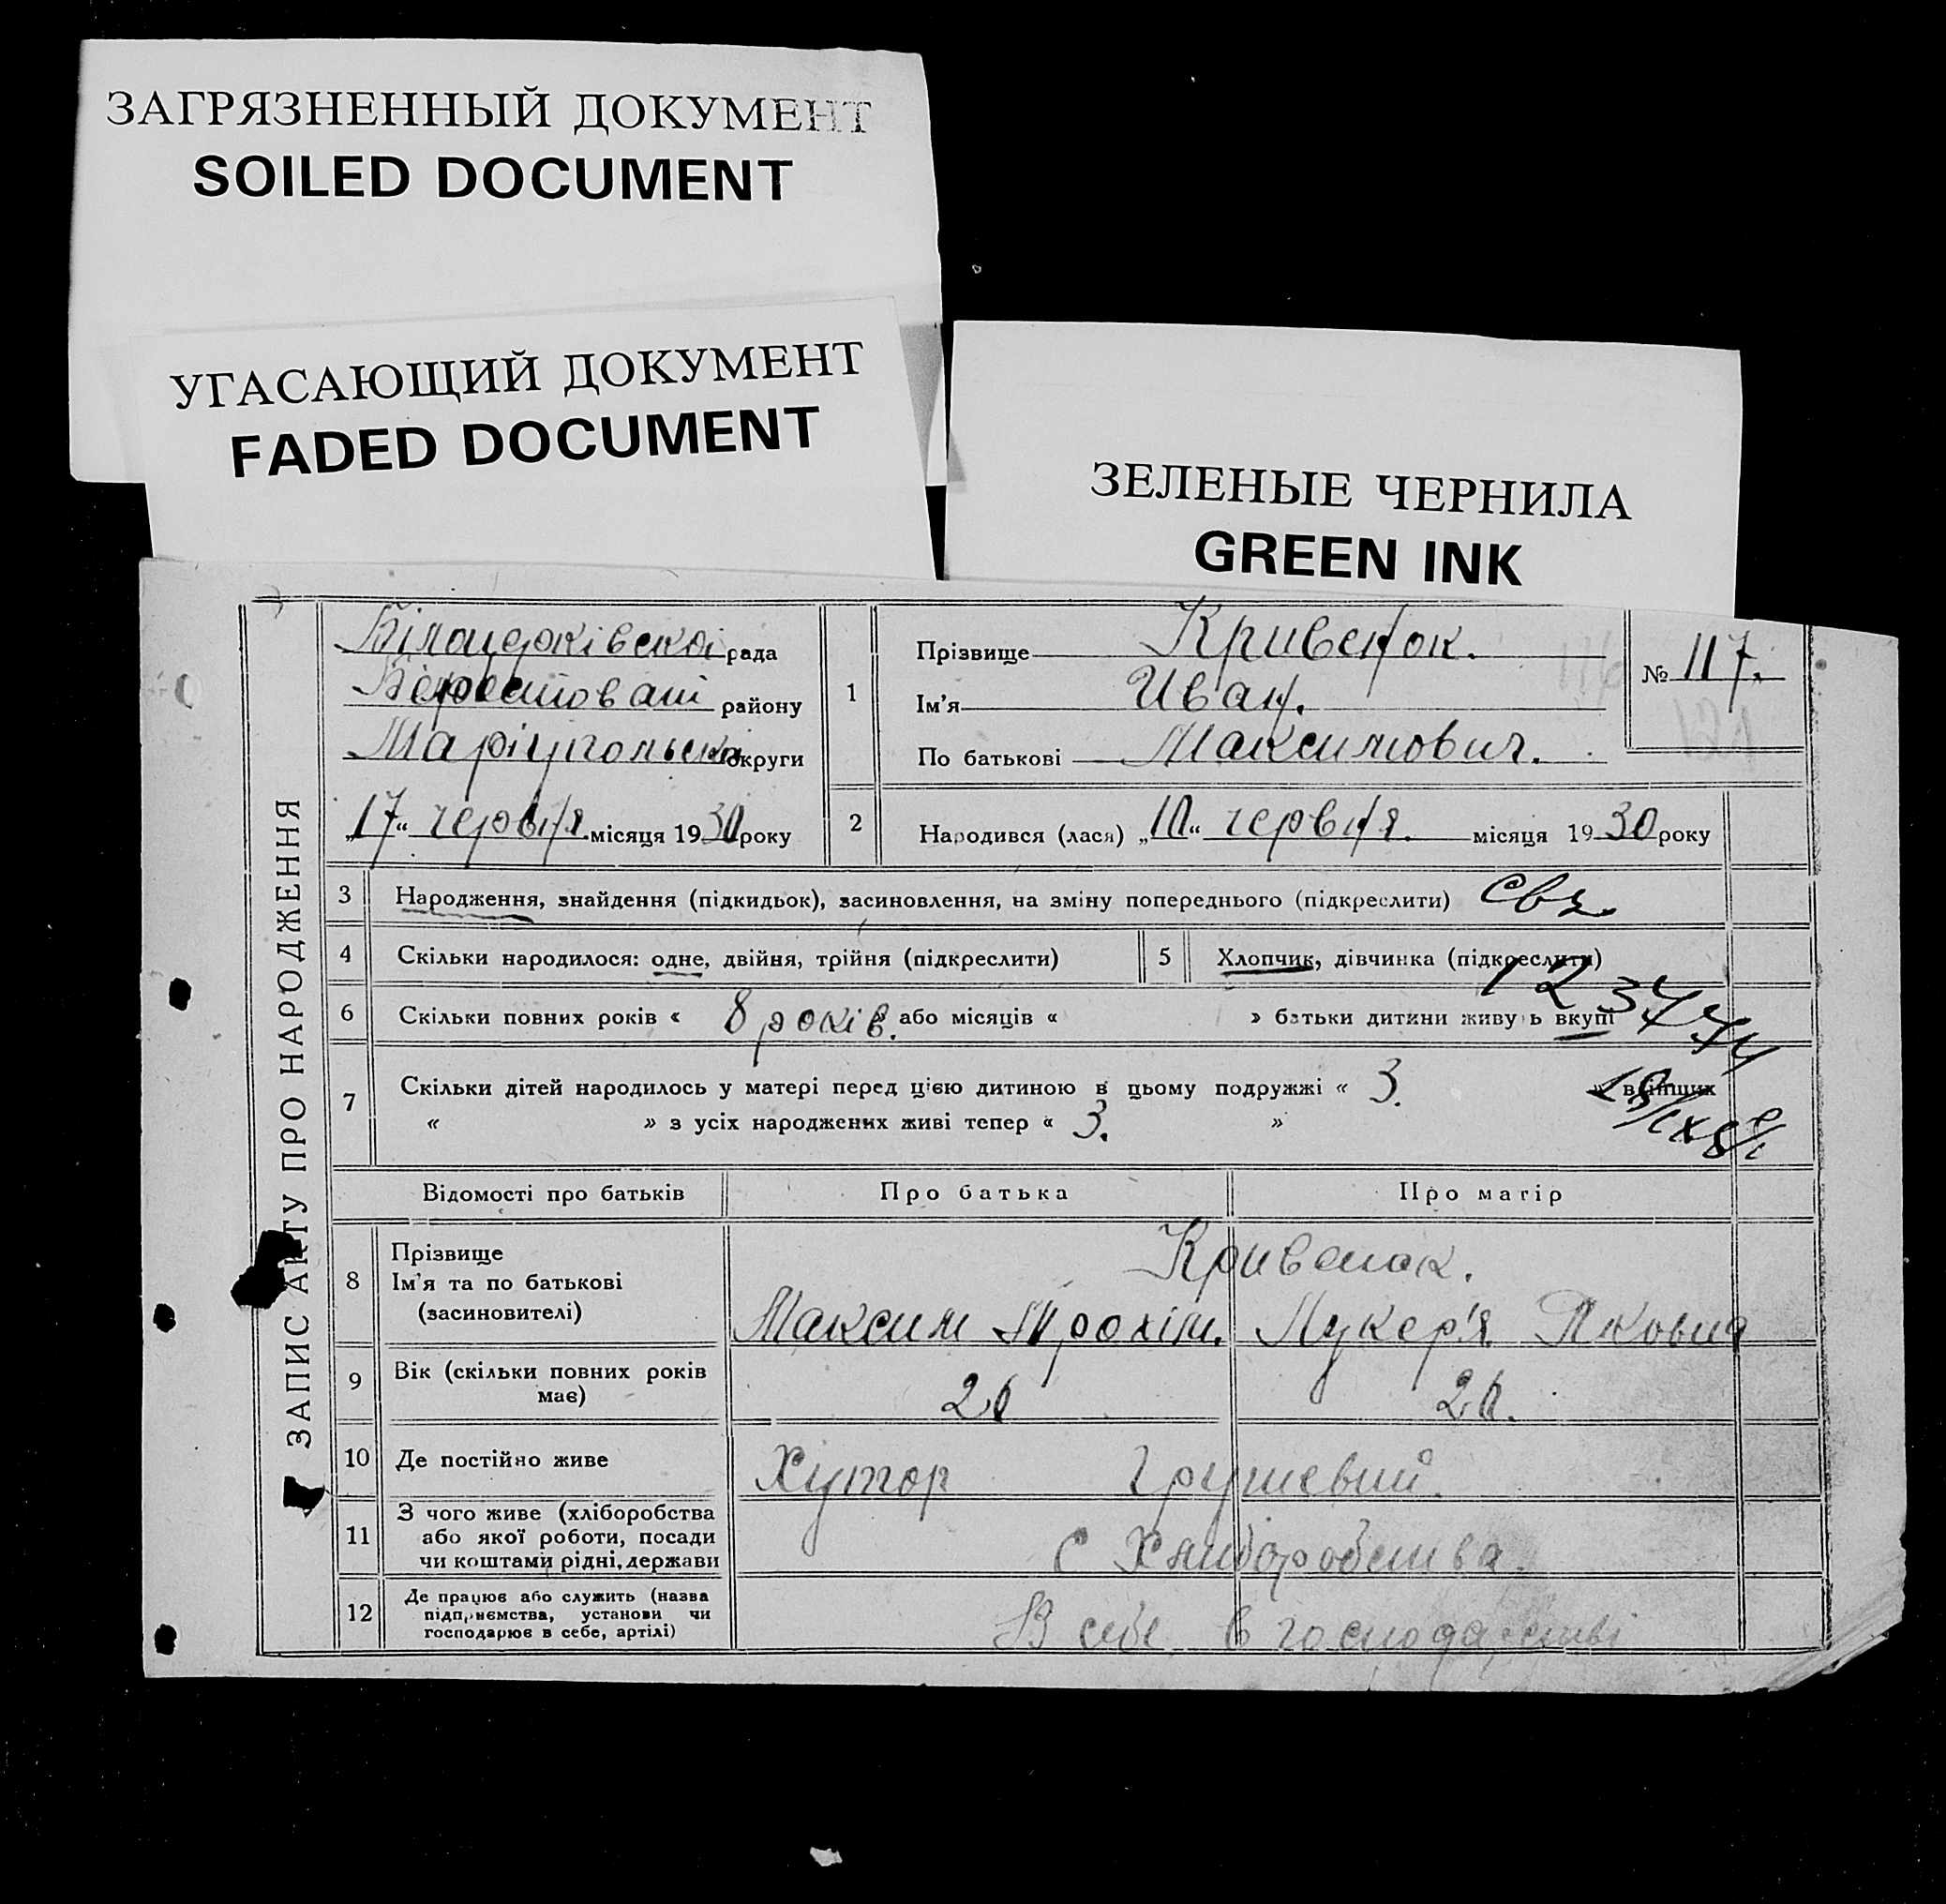 ЗАГРЯЗНЕННЫЙ ДОКУМЕНТ
SOILED DOCUMENT
УГАСАЮЩИЙ ДОКУМЕНТ
FADED DOCUMENT
ЗЕЛЕНЫЕ ЧЕРНИЛА
GREEN INK
ЗАПИС АКТУ ПРО НАРОДЖЕННЯ
рада
району
Маріупольська округи
„17“ червня місяця 1930 року
1
Прізвище Кривенок.
Ім'я Иван.
По батькові Максимович.
№ 117.
2
Народився (лася) „10“ червня. місяця 1930 року
3 Народження, знайдення (підкидьок), засиновлення, на зміну попереднього (підкреслити)
4 Скільки народилося: одне, двійня, трійня (підкреслити)
5 Хлопчик, дівчинка (підкреслити)
6 Скільки повних років « 8 років. » або місяців « » батьки дитини живуть вкупі
7 Скільки дітей народилось у матері перед цією дитиною в цьому подружжі « 3. » в інших
« » з усіх народжених живі тепер « 3. »
Відомості про батьків Про батька Про матір
8 Прізвище
Ім'я та по батькові
(засиновителі)
Кривенок.
Максим Трохім. Лукер'я Яковна
9 Вік (скільки повних років
має)
26 26.
10 Де постійно живе Хутор Грушевий.
11 З чого живе (хліборобства
або якої роботи, посади
чи коштами рідні, держави
С Хлиборобства.
12 Де працює або служить (назва
підприємства, установи чи
господарює в себе, артілі)
В себе в господарстві